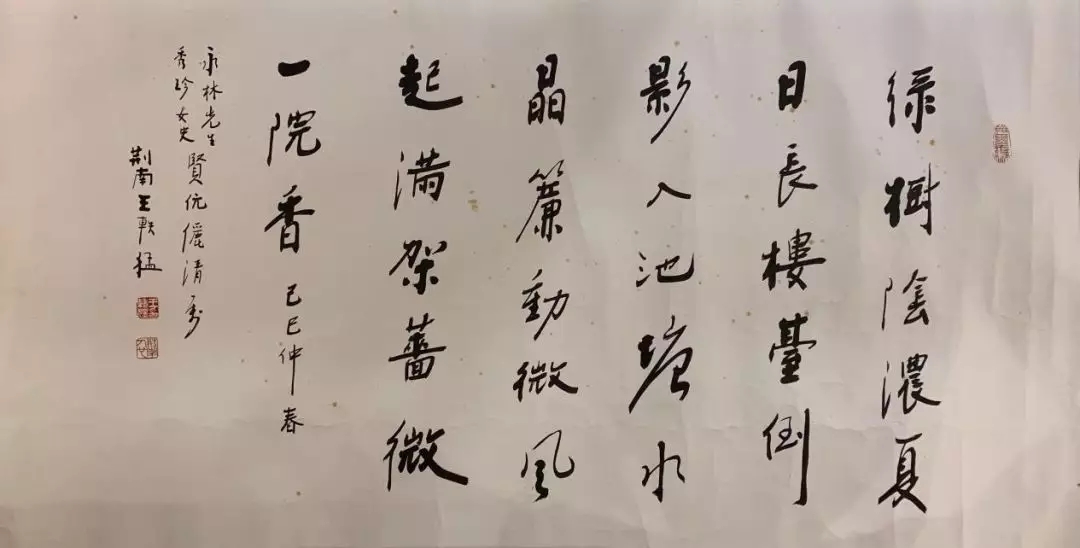 緑樹陰濃夏
日長樓臺倒
影入池塘水
晶簾動微風
起滿架薔微
一院香 己巳仲春
永林先生
秀珍女史賢伉儷清秀
荆南王軼猛